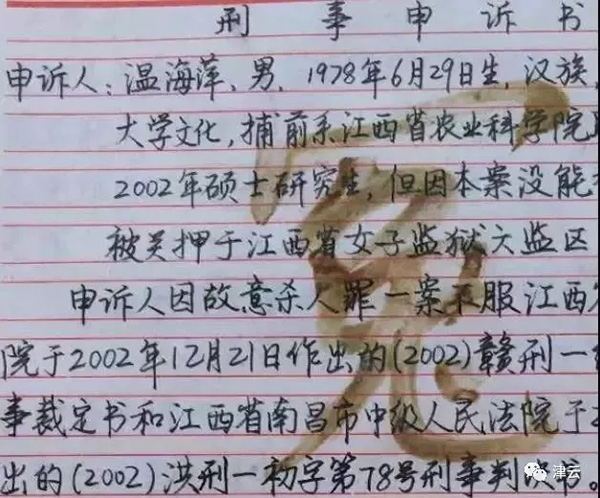 刑事申诉书
申诉人：温海萍，男，1978年6月29日生，汉族，
大学文化，捕前系江西省农业科学院
2002年硕士研究生，但因本案没能
被关押于江西省女子监狱六监区
申诉人因故意杀人罪一案不服江西
院于2002年12月21日作出的(2002)赣刑一
事裁定书和江西省南昌市中级人民法院于
出的(2002)洪刑一初字第78号刑事判决书。
冤
津云